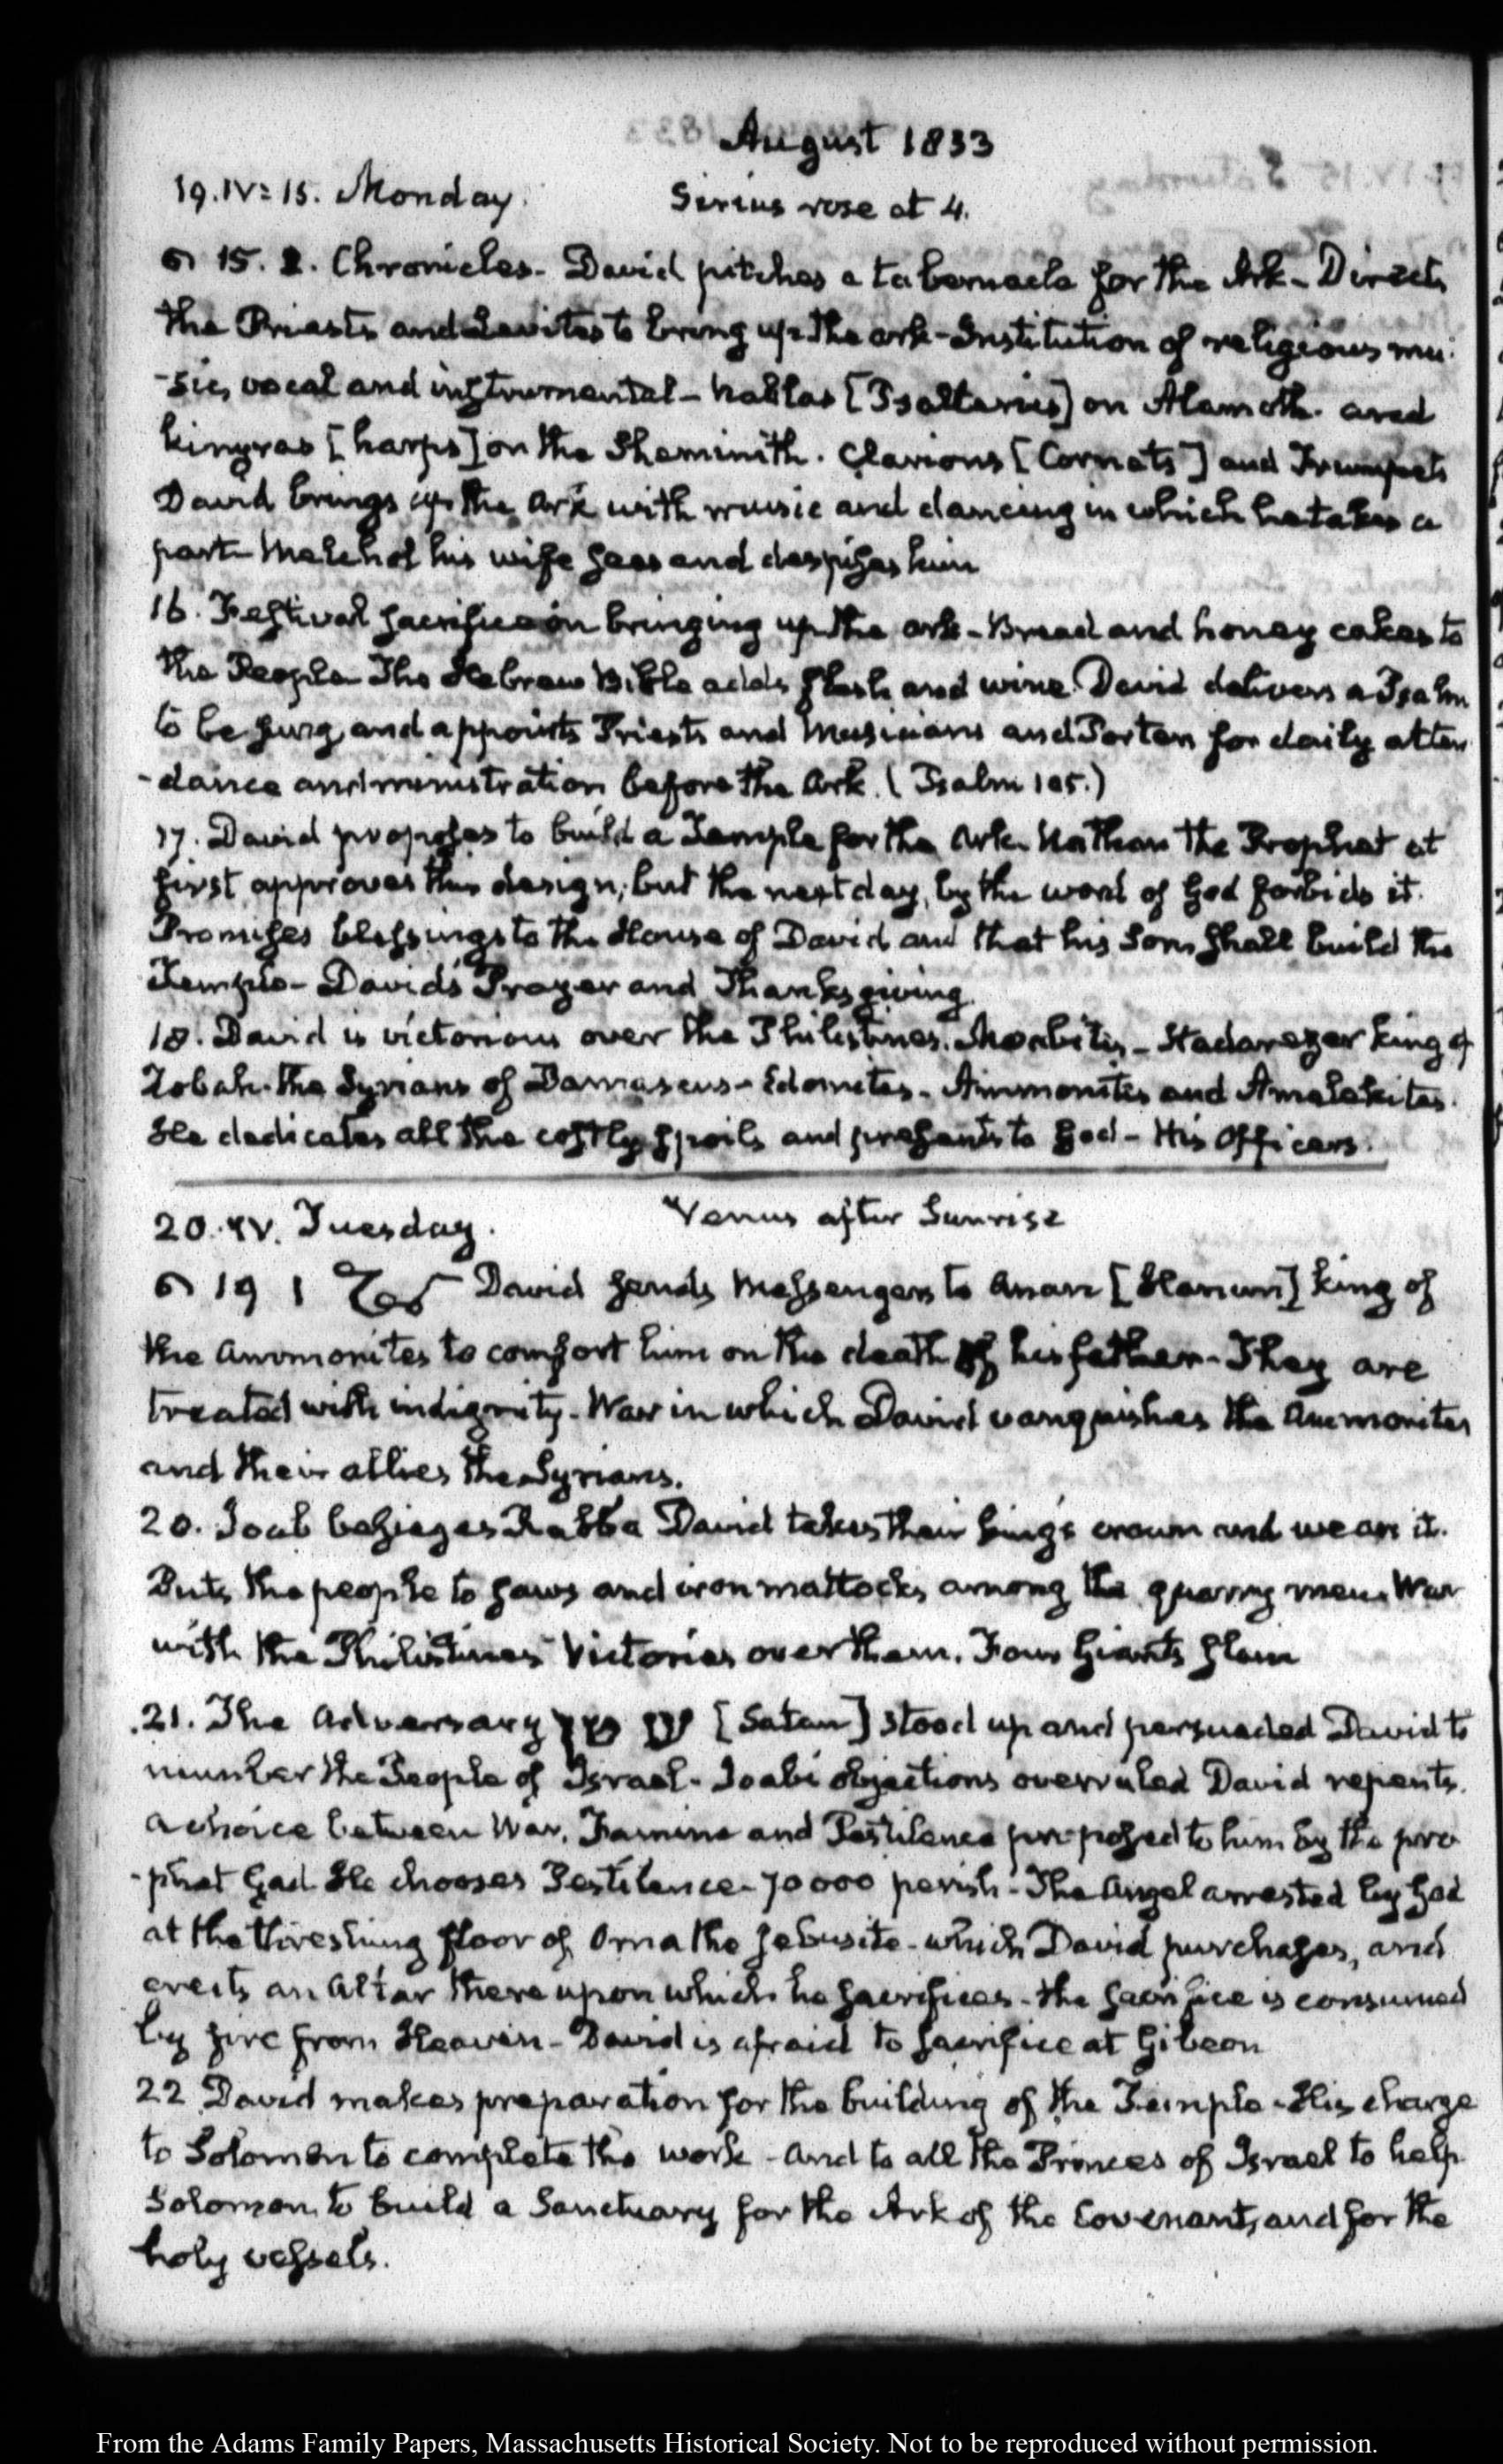 August 1833
19. IV: 15. Monday. Sirius rose at 4.
15. 1. Chronicles. David pitches a tabernacle for the Ark - Directs
the Priests and Levites to bring up the ark - Institution of religious mu-
-sic, vocal and instrumental - Nablas [Psalteries] on Alamoth. and
kinyras [harps] on the Sheminith. Clarions [Cornets] and Trumpets
David brings up the Ark with music and dancing in which he takes a
part - Melchol his wife sees and despises him
16. Festival sacrifice on bringing up the ark - Bread and honey cakes to
the People The Hebrew Bible adds flesh and wine. David delivers a Psalm
to be sung, and appoints Priests and Musicians and Porters for daily atten
-dance and ministration before the Ark. (Psalm 105.)
17. David proposes to build a Temple for the Ark. Nathan the Prophet at
first approves this design, but the next day, by the word of God forbids it.
Promises blessings to the House of David and that his Son shall build the
Temple - David's Prayer and Thanksgiving.
18. David is victorious over the Philistines. Moabites - Hadarezer king of
Zobah. the Syrians of Damascus - Edomites - Ammonites and Amalekites.
He dedicates all the costly spoils and presents to God - His Officers.
20. IV. Tuesday. Venus after Sunrise
19 1 David sends Messengers to Anan [Hanun] king of
the Ammonites to comfort him on the death of his father - They are
treated with indignity - War in which David vanquishes the Ammonites
and their allies the Syrians.
20. Joab besieges Rabba David takes their king's crown and wears it.
Puts the people to saws and iron mattocks, among the quarry men. War
with the Philistines Victories over them. Four Giants slain
21. The Adversary [Satan] stood up and persuaded David to
number the People of Israel - Joab's objections overruled David repents.
a choice between War, Famine and Pestilence proposed to him by the pro
-phet Gad. He chooses Pestilence - 70000 perish - The Angel arrested by God
at the threshing floor of Orna the Jebusite - which David purchases, and
erects an Altar there upon which he sacrifices - the sacrifice is consumed
by fire from Heaven - David is afraid to sacrifice at Gibeon
22 David makes preparation for the building of the Temple - His charge
to Solomon to complete the work - and to all the Princes of Israel to help
Solomon to build a Sanctuary for the Ark of the Covenant, and for the
holy vessels.
From the Adams Family Papers, Massachusetts Historical Society. Not to be reproduced without permission.